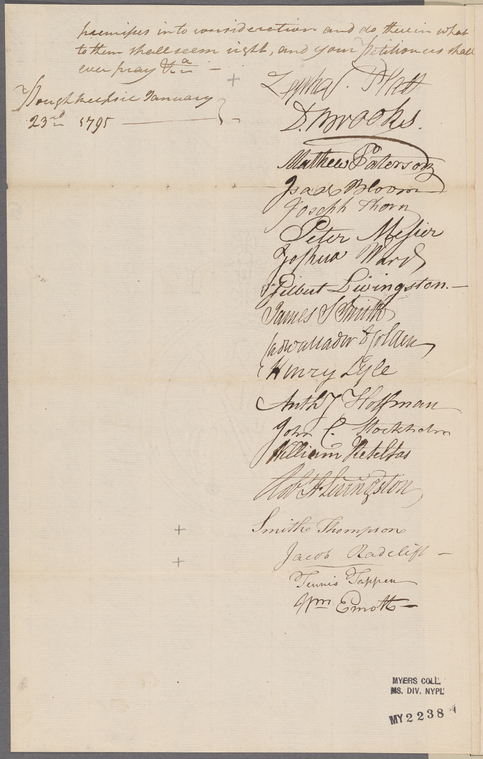 premises into consideration and do therein what
to them shall seem right, and your Petitioners shall
ever pray &ca —
Poughkeepsie January
23rd 1795
Zepha. Platt
D. Brooks.
Matthew Paterson
Isaac Bloom
Joseph Thorn
Peter Mesier
Joshua Ward
Gilbert Livingston.—
James S Smith
Cadwallader D Colden
Henry Lyle
Anthy Hoffman
John C. Stockholm
William
Rob. H Livingston
Smith Thompson
Jacob Radclift —
Teunis Tappen
Wm Emott —
MYERS COLL.
MS. DIV. NYPL
MY 2238